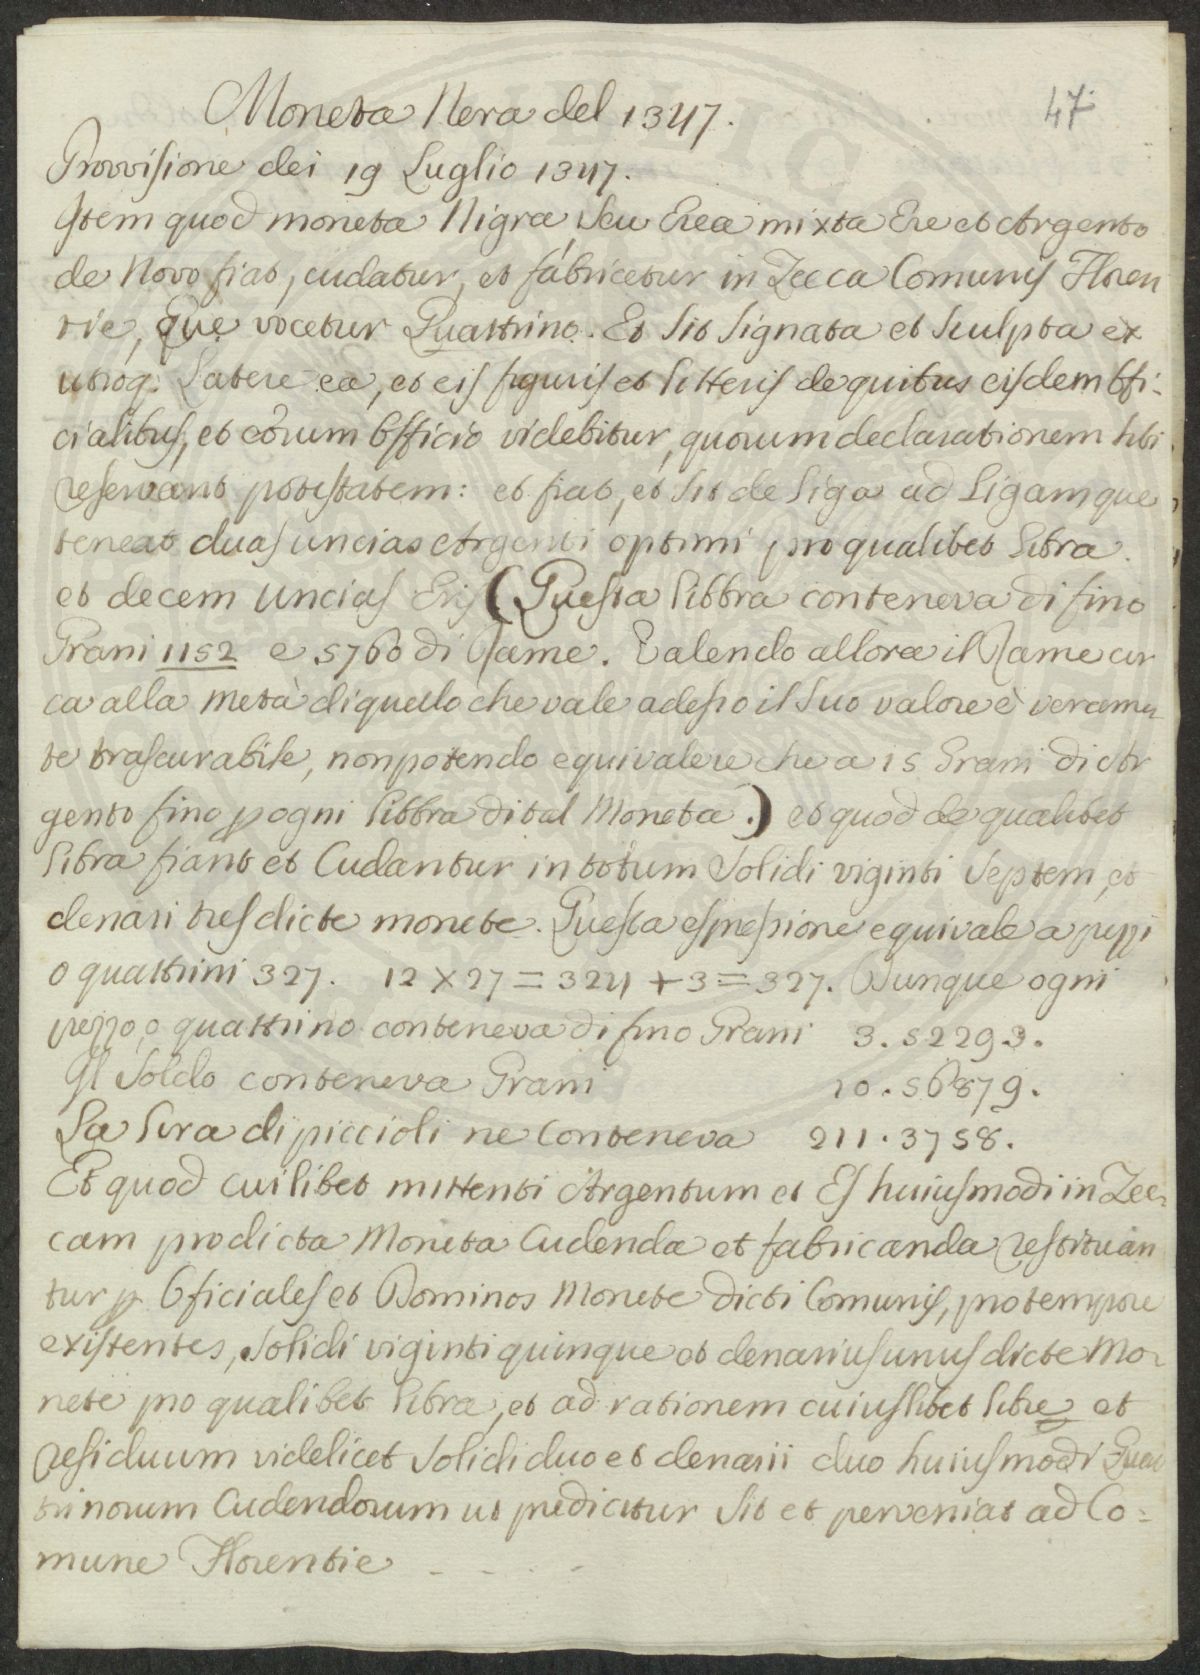 47
Moneta Nera del 1347.
Provvisione dei 19 Luglio 1347.
Item quod moneta Nigra seu Erea mixta Ere et Argento
de Novo fiat, cudatur, et fabricetur in Zecca Comunis Floren
tie, que vocetur Quattrino. Et sit signata et sculpta ex
utroq. Latere ea, et eis figuris et litteris de quibus eisdem Offi-
cialibus, et eorum Officio videbitur, quorum declarationem sibi
reservant potestatem: et fiat, et sit de liga ad Ligam que
teneat duas uncias Argenti optimi pro qualibet libra
et decem Uncias Eris (Questa libbra conteneva di fino
Grani 1152 e 5760 di Rame. Valendo allora il Rame cir
ca alla metà di quello che vale adesso il suo valore è verame
te trascurabile, non potendo equivalere che a 15 Grani di Ar
gento fino p ogni libbra di tal Moneta.) et quod de qualibet
libra fiant et Cudantur in totum Solidi viginti septem, et
denari tres dicte monete. Questa espressione equivale a pezzi
o quattrini 327. 12 × 27 = 324 + 3 = 327. Dunque ogni
pezzo, o quattrino conteneva di fino Grani 3.52293.
Il Soldo conteneva Grani 10.56879.
La lira di piccioli ne Conteneva 211.3758.
Et quod cuilibet mittenti Argentum et Es huiusmodi in Zec-
cam pro dicta Moneta Cudenda et fabricanda restituan
tur p Oficiales et Dominos Monete dicti Comunis, pro tempore
existentes, Solidi viginti quinque et denarius unus dicte Mo-
nete pro qualibet libra, et ad rationem cuiuslibet libre et
residuum videlicet Solidi duo et denarii duo huiusmodi Quat
trinorum Cudendorum ut predicitur sit et perveniat ad Co-
mune Florentie - - - -